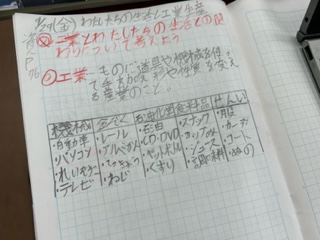 (金) わたしたちの生活と工業生産
工業とわたしたちの生活との関
わりについて考えよう
工業…ものに道具や機械を使っ
て手を加え形や性質を変え
る産業のこと。
機械 金ぞく 石油化学 食料品 せんい
・自動車 ・レール ・スナック ・服
・パソコン ・アルミかん ・CD・DVD ・カップめん ・カーテン
・れいぞうこ ・てっきょう ・ペットボトル ・ジュース ・コート
・テレビ ・ねじ ・くすり ・調味料